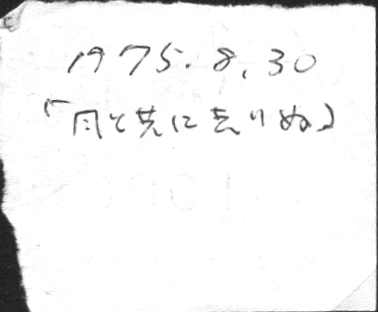 1975.8.30
「風と共に去りぬ」